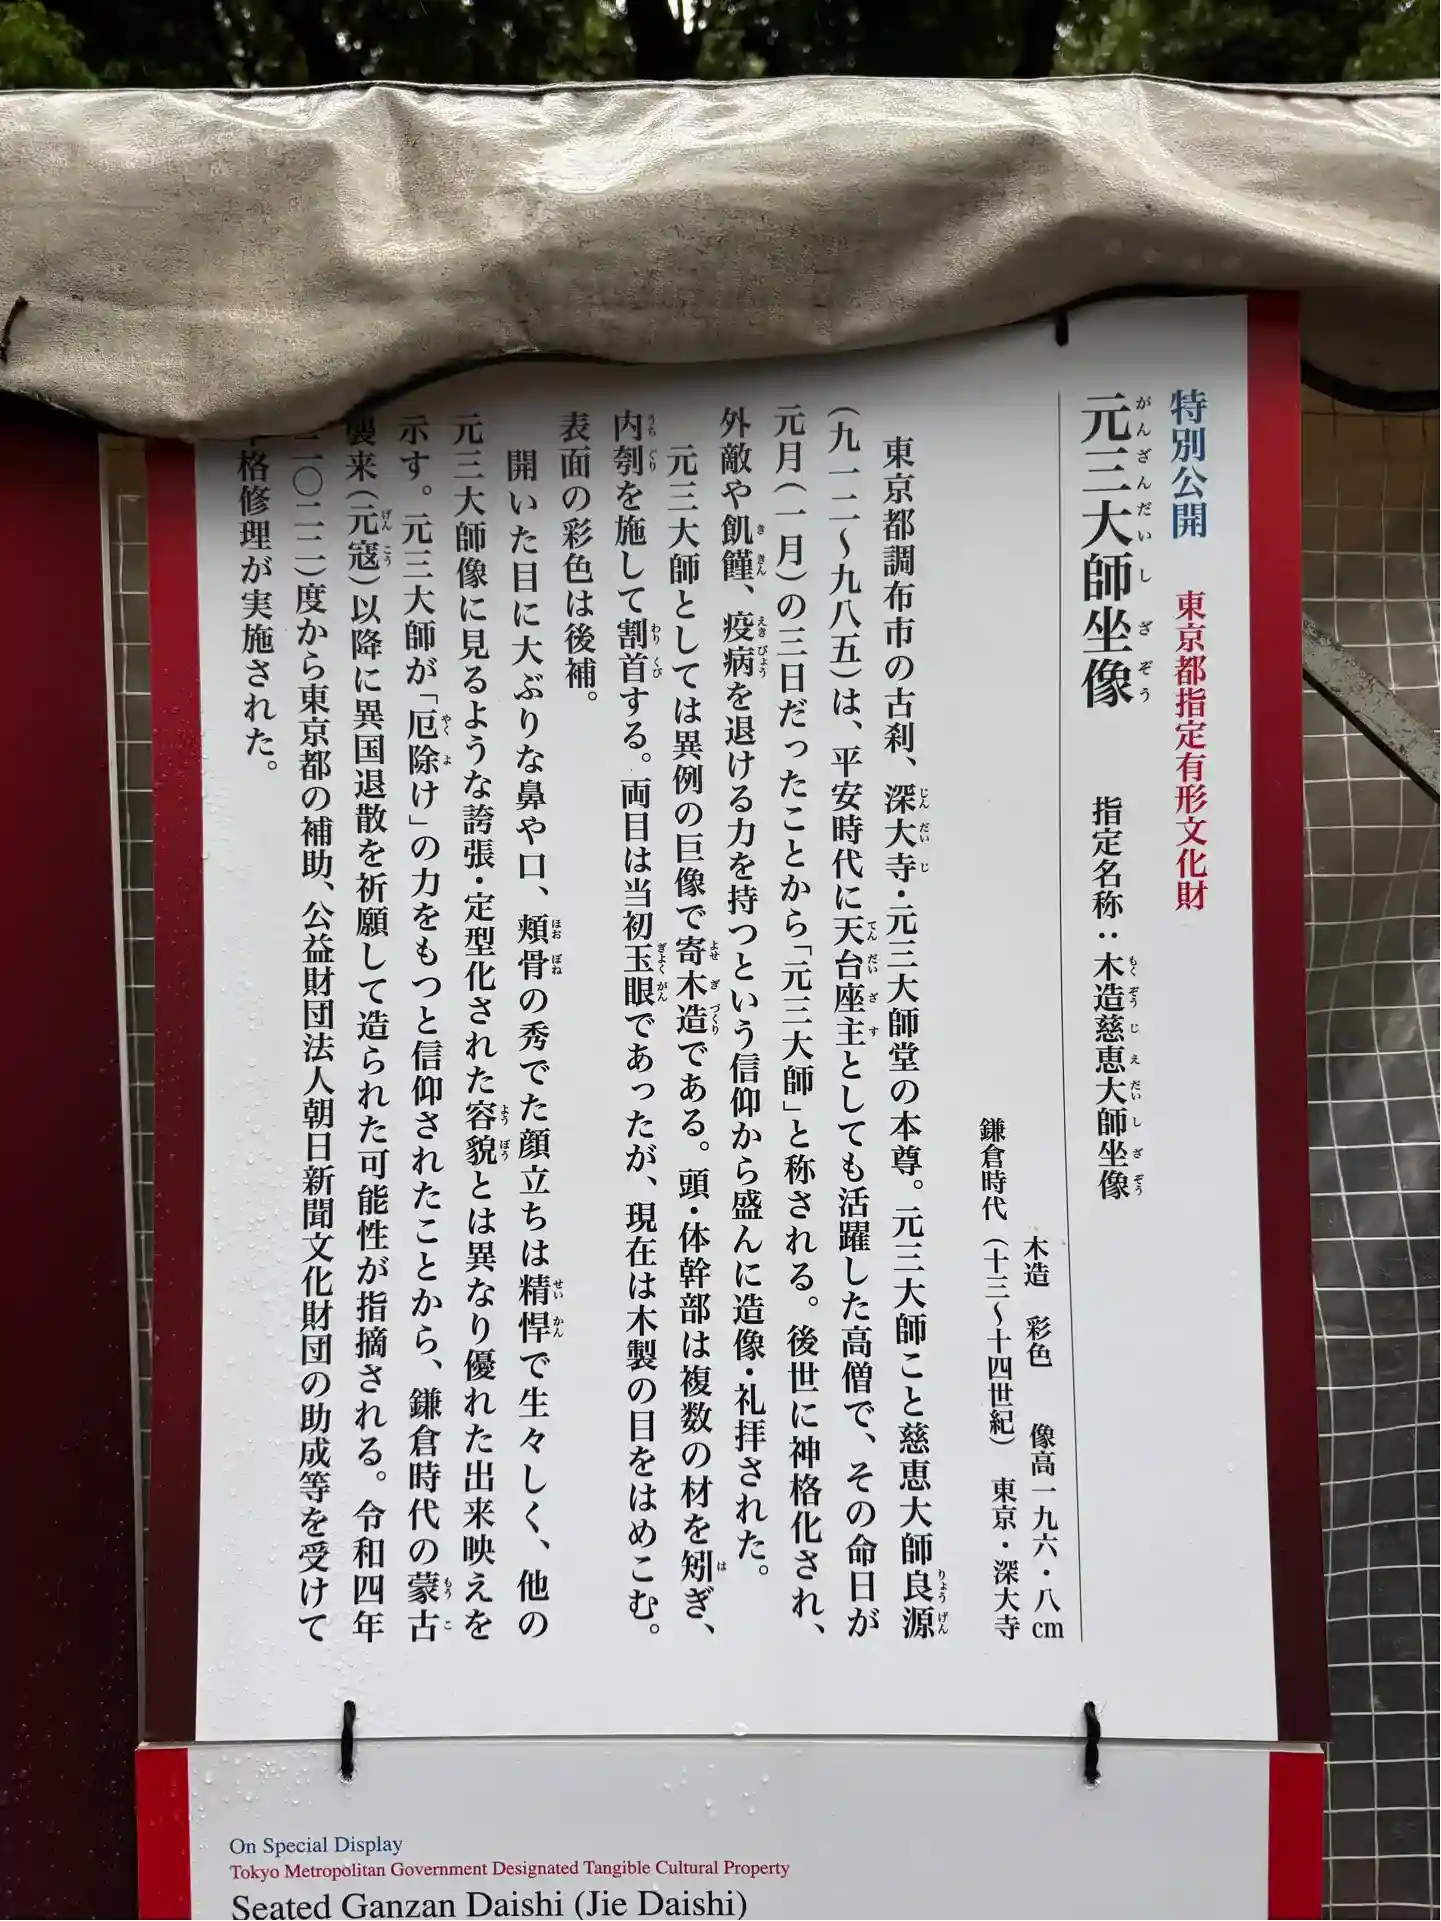 特別公開　東京都指定有形文化財
元三大師坐像　指定名称：木造慈恵大師坐像
木造　彩色　像高一九六・八cm
鎌倉時代（十三〜十四世紀）　東京・深大寺
東京都調布市の古刹、深大寺・元三大師堂の本尊。元三大師こと慈恵大師良源
（九一二〜九八五）は、平安時代に天台座主としても活躍した高僧で、その命日が
元月（一月）の三日だったことから「元三大師」と称される。後世に神格化され、
外敵や飢饉、疫病を退ける力を持つという信仰から盛んに造像・礼拝された。
元三大師としては異例の巨像で寄木造である。頭・体幹部は複数の材を矧ぎ、
内刳を施して割首する。両目は当初玉眼であったが、現在は木製の目をはめこむ。
表面の彩色は後補。
開いた目に大ぶりな鼻や口、頬骨の秀でた顔立ちは精悍で生々しく、他の
元三大師像に見るような誇張・定型化された容貌とは異なり優れた出来映えを
示す。元三大師が「厄除け」の力をもつと信仰されたことから、鎌倉時代の蒙古
襲来（元寇）以降に異国退散を祈願して造られた可能性が指摘される。令和四年
二〇二二）度から東京都の補助、公益財団法人朝日新聞文化財団の助成等を受けて
格修理が実施された。
On Special Display
Tokyo Metropolitan Government Designated Tangible Cultural Property
Seated Ganzan Daishi (Jie Daishi)